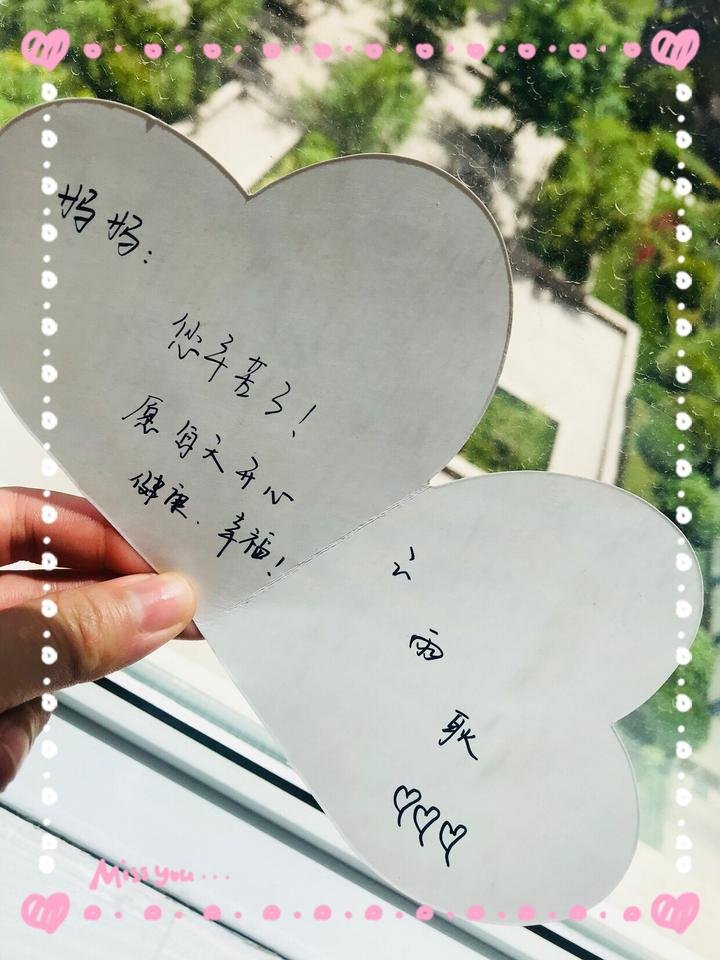 妈妈：
您辛苦了！
愿每天开心
健康、幸福！
云
雨
耿
Miss you...